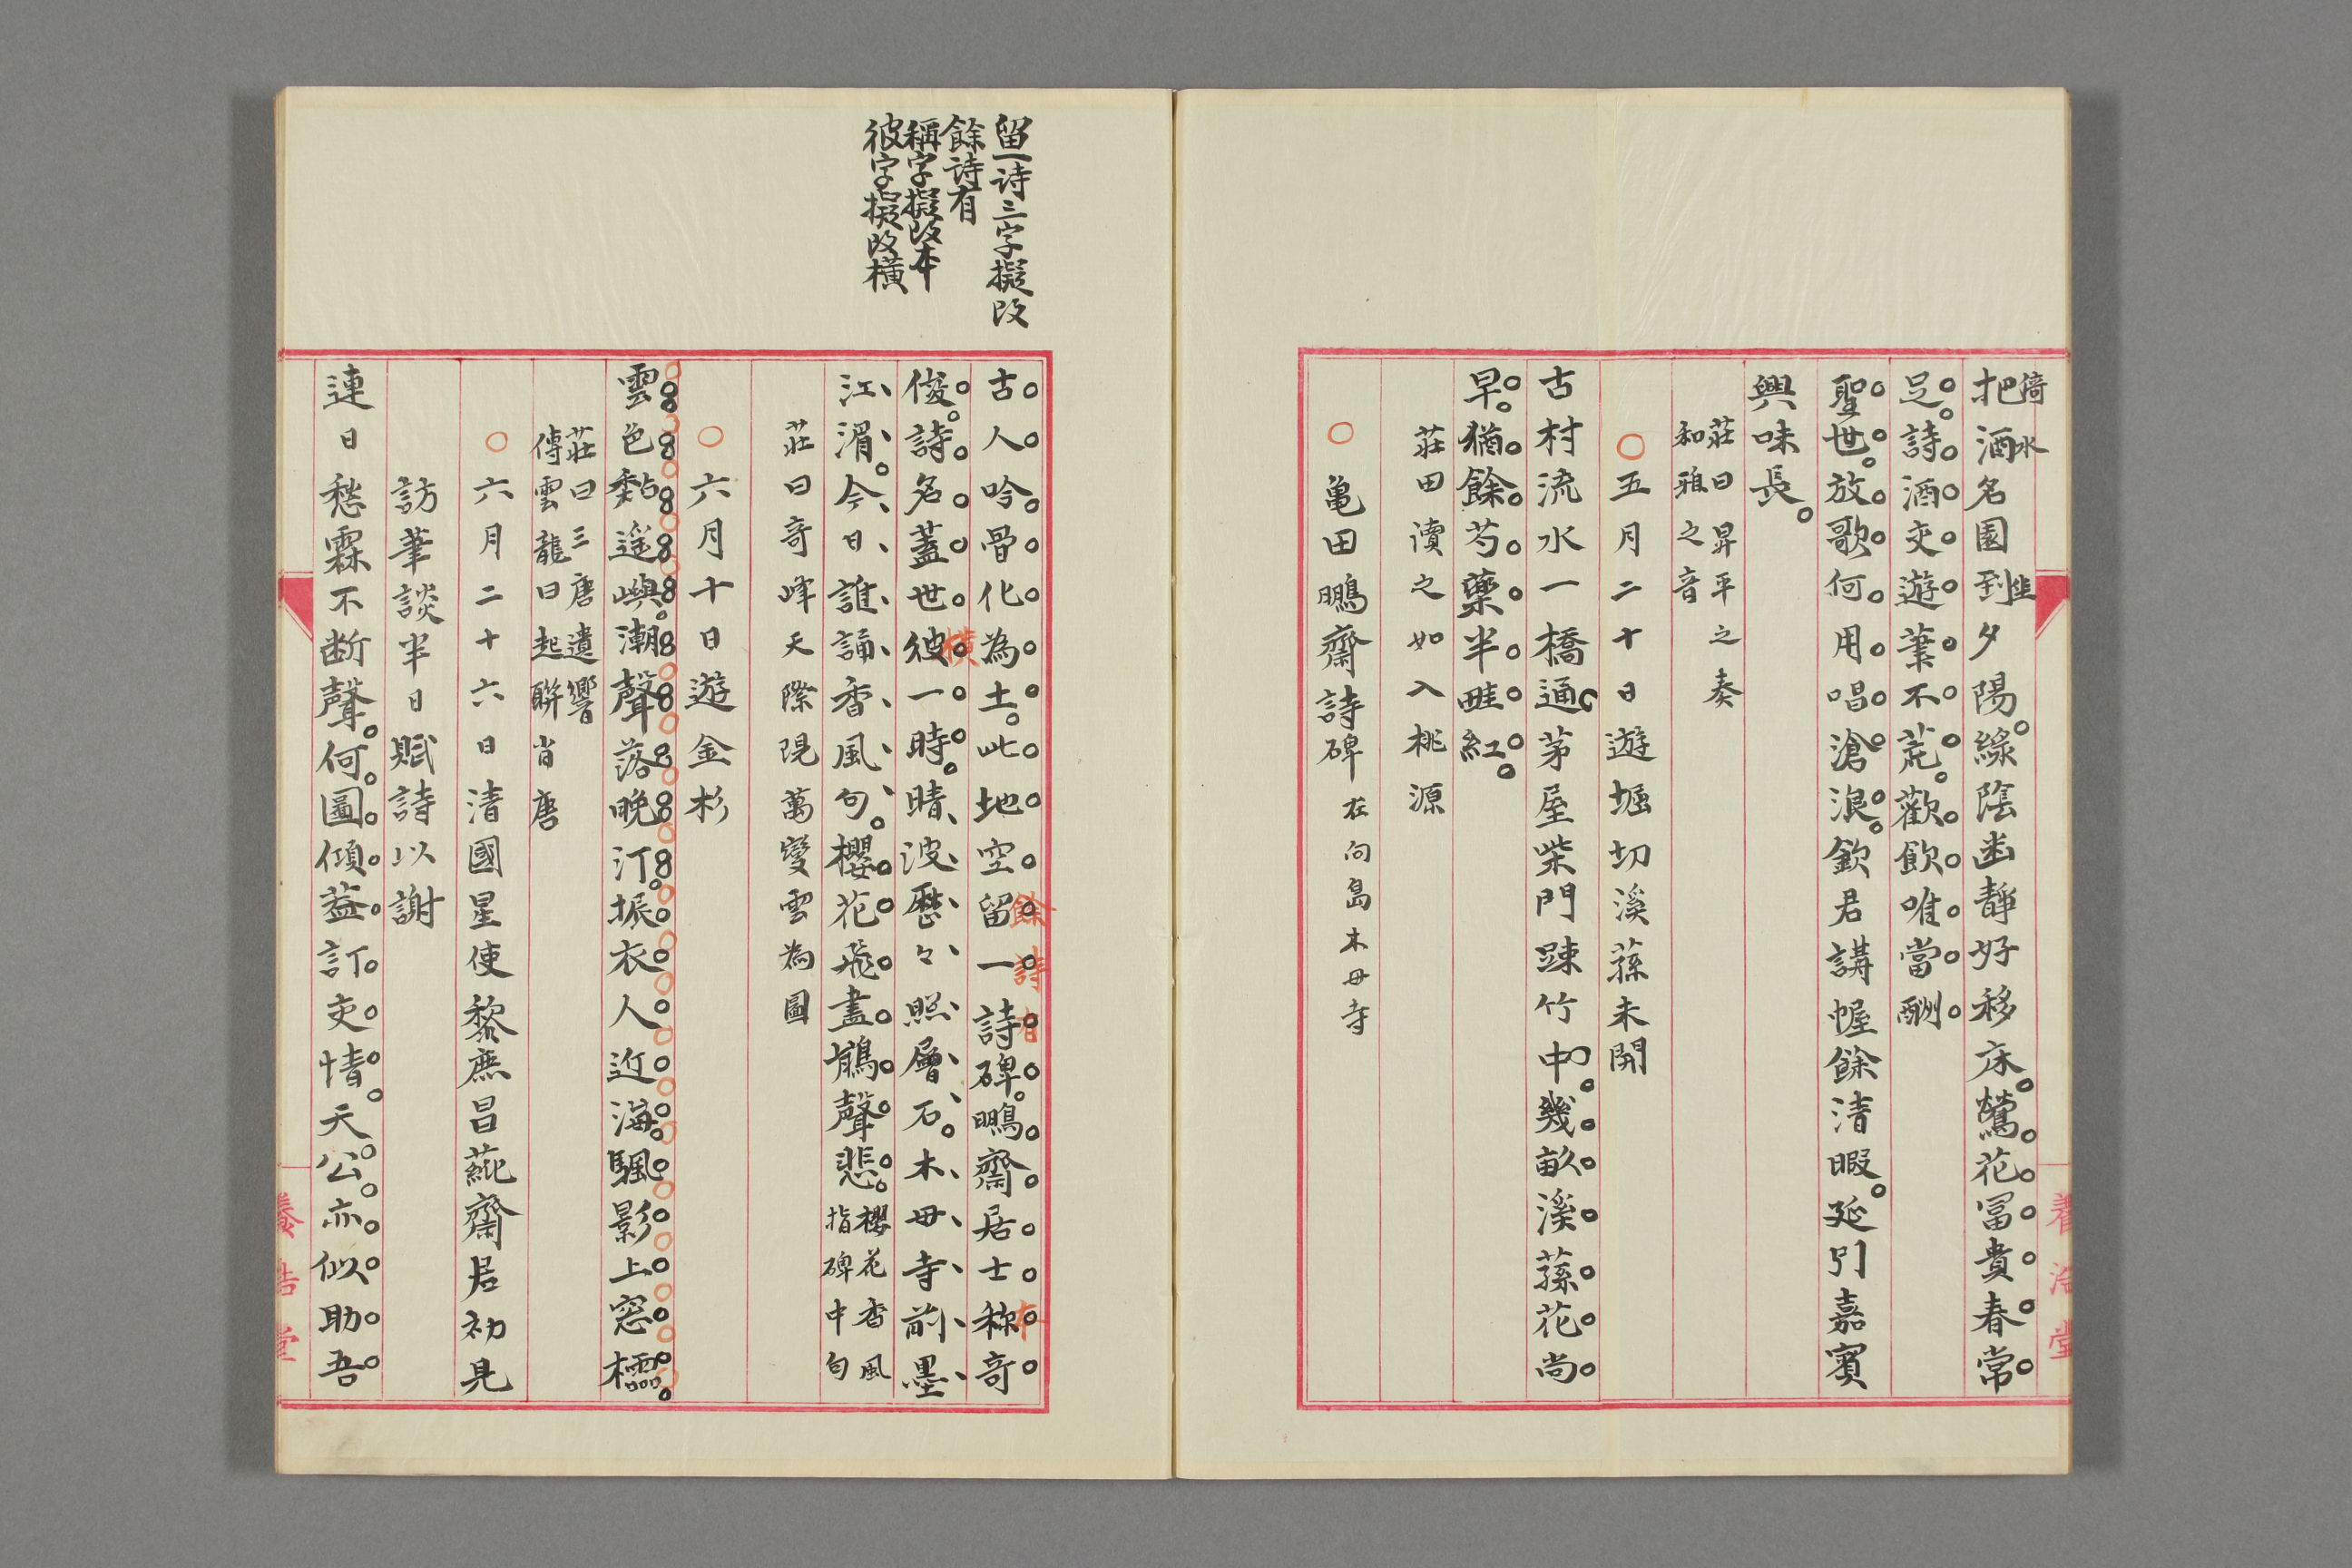 把酒名園到夕陽綠陰幽靜好移床鶯花冨貴春常
倚水
畦
足詩酒交遊筆不荒歡飲唯當酬
聖世放歌何用唱滄浪欽君講幄餘清暇延引嘉賓
興味長
莊曰昇平之奏
和雅之音
五月二十日遊堀切溪蓀未開
古村流水一橋通茅屋柴門踈竹中幾畝溪蓀花尚
早猶餘芍藥半畦紅
莊田讀之如入桃源
亀田鵬齋詩碑在向島木母寺
養浩堂
留一詩三字擬改
餘詩有
稱字擬改本
彼字擬改橫
古人吟骨化為土此地空留一詩碑鵬齋居士称竒
餘詩有
本
俊詩名蓋世彼一時晴波歷々照層石木毋寺前墨
橫
江湄今日誰誦香風句櫻花飛盡鵑聲悲櫻花香風
指碑中句
莊曰竒峰天際現萬變雲為圖
六月十日遊金杉
雲色黏遥嶼潮聲落晚汀振衣人近海颿影上窓櫺
莊曰三唐遺響
傳雲龍曰起聨肖唐
六月二十六日清國星使黎庶昌蒓齋居初見
訪筆談半日賦詩以謝
連日愁霖不断聲何圖傾蓋訂交情天公亦似助吾
養浩堂